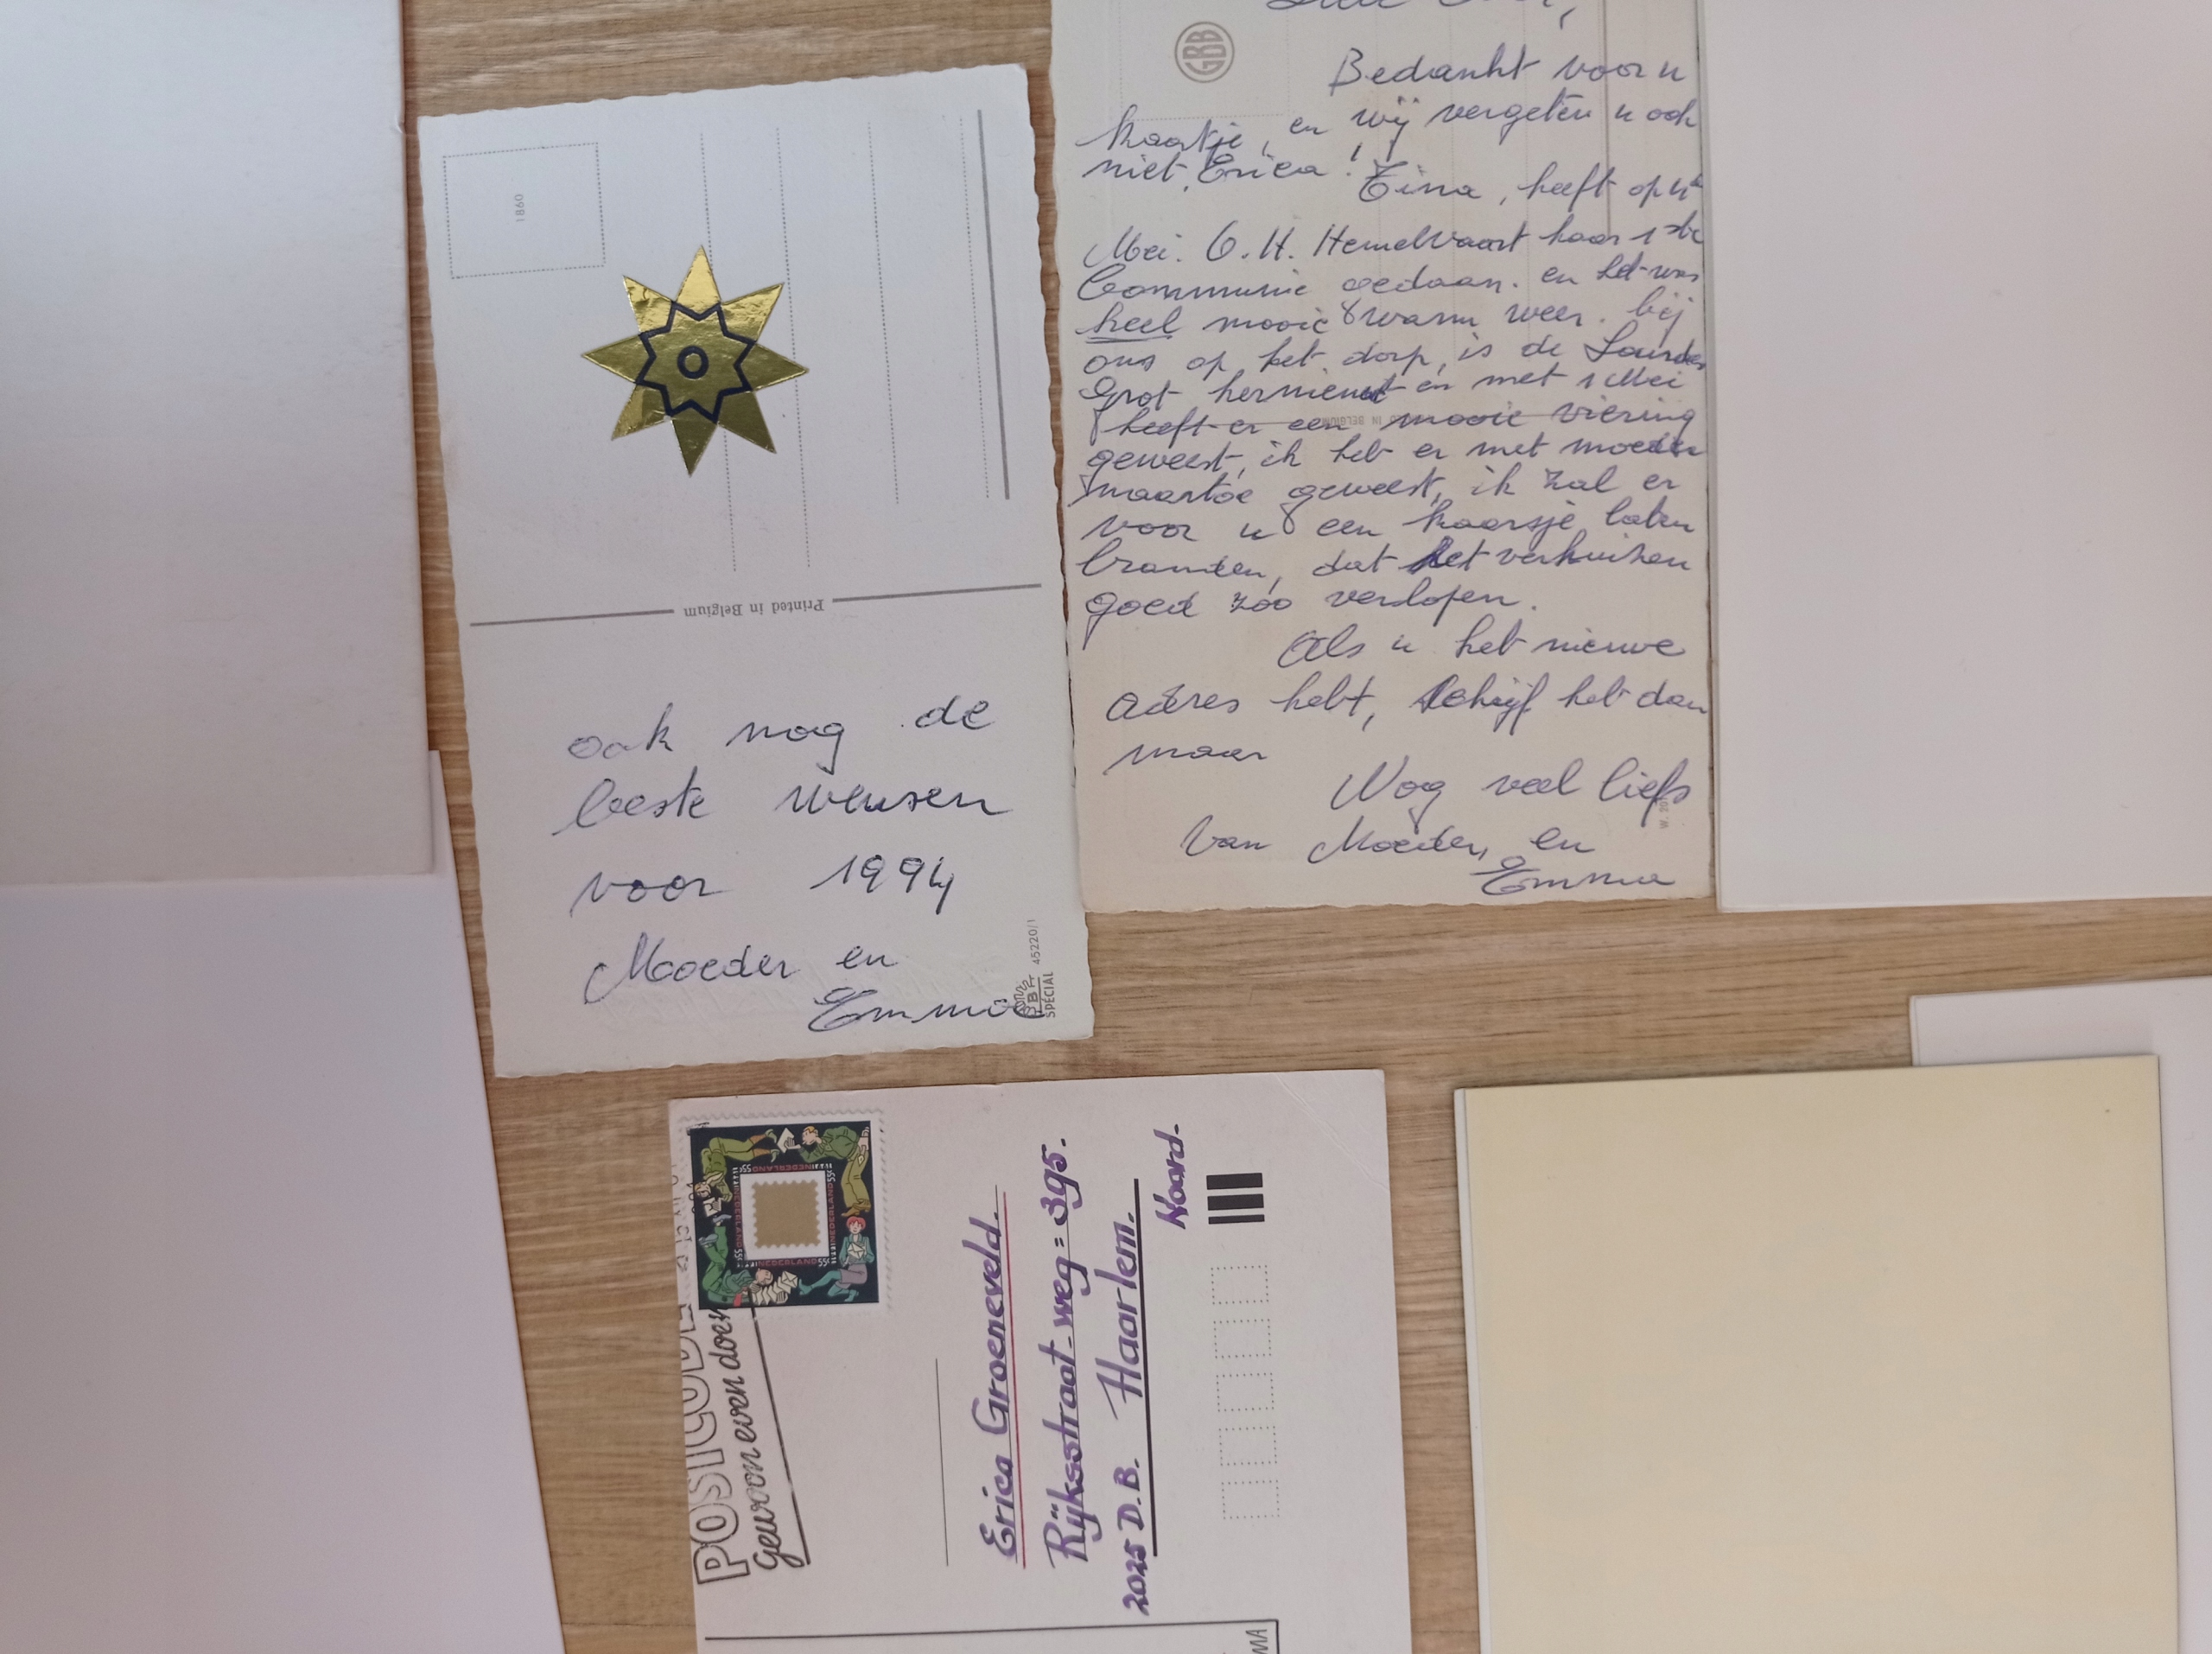 1860
Printed in Belgium
ook nog de
beste wensen
voor 1994
Moeder en
Emma
45220/1
SPECIAL
GBB
Bedankt voor u
kaartje, en wij vergeten u ook
niet, Erica!
Tina, heeft op
Mei. O.H. Hemelvaart haar 1ste
Communie gedaan. en het was
heel mooie & warm weer. bij
ons op het dorp, is de Lourdes
Grot hernieuwt en met 1 Mei
heeft er een mooie viering
IN BELGIUM
geweest, ik heb er met moeder
naartoe geweest, ik zal er
voor u een kaarsje laten
branden, dat het verhuizen
goed zoo verlopen.
Als u het nieuwe
adres hebt, schrijf het dan
maar
Nog veel liefs
van Moeder, en
Emma
POSTCODE
Gewoon even doen
NEDERLAND 55c
NEDERLAND 55c
NEDERLAND 55c
NEDERLAND 55c
Erica Groeneveld.
Rijksstraat-weg = 395.
2025 D.B. Haarlem.
Noord.